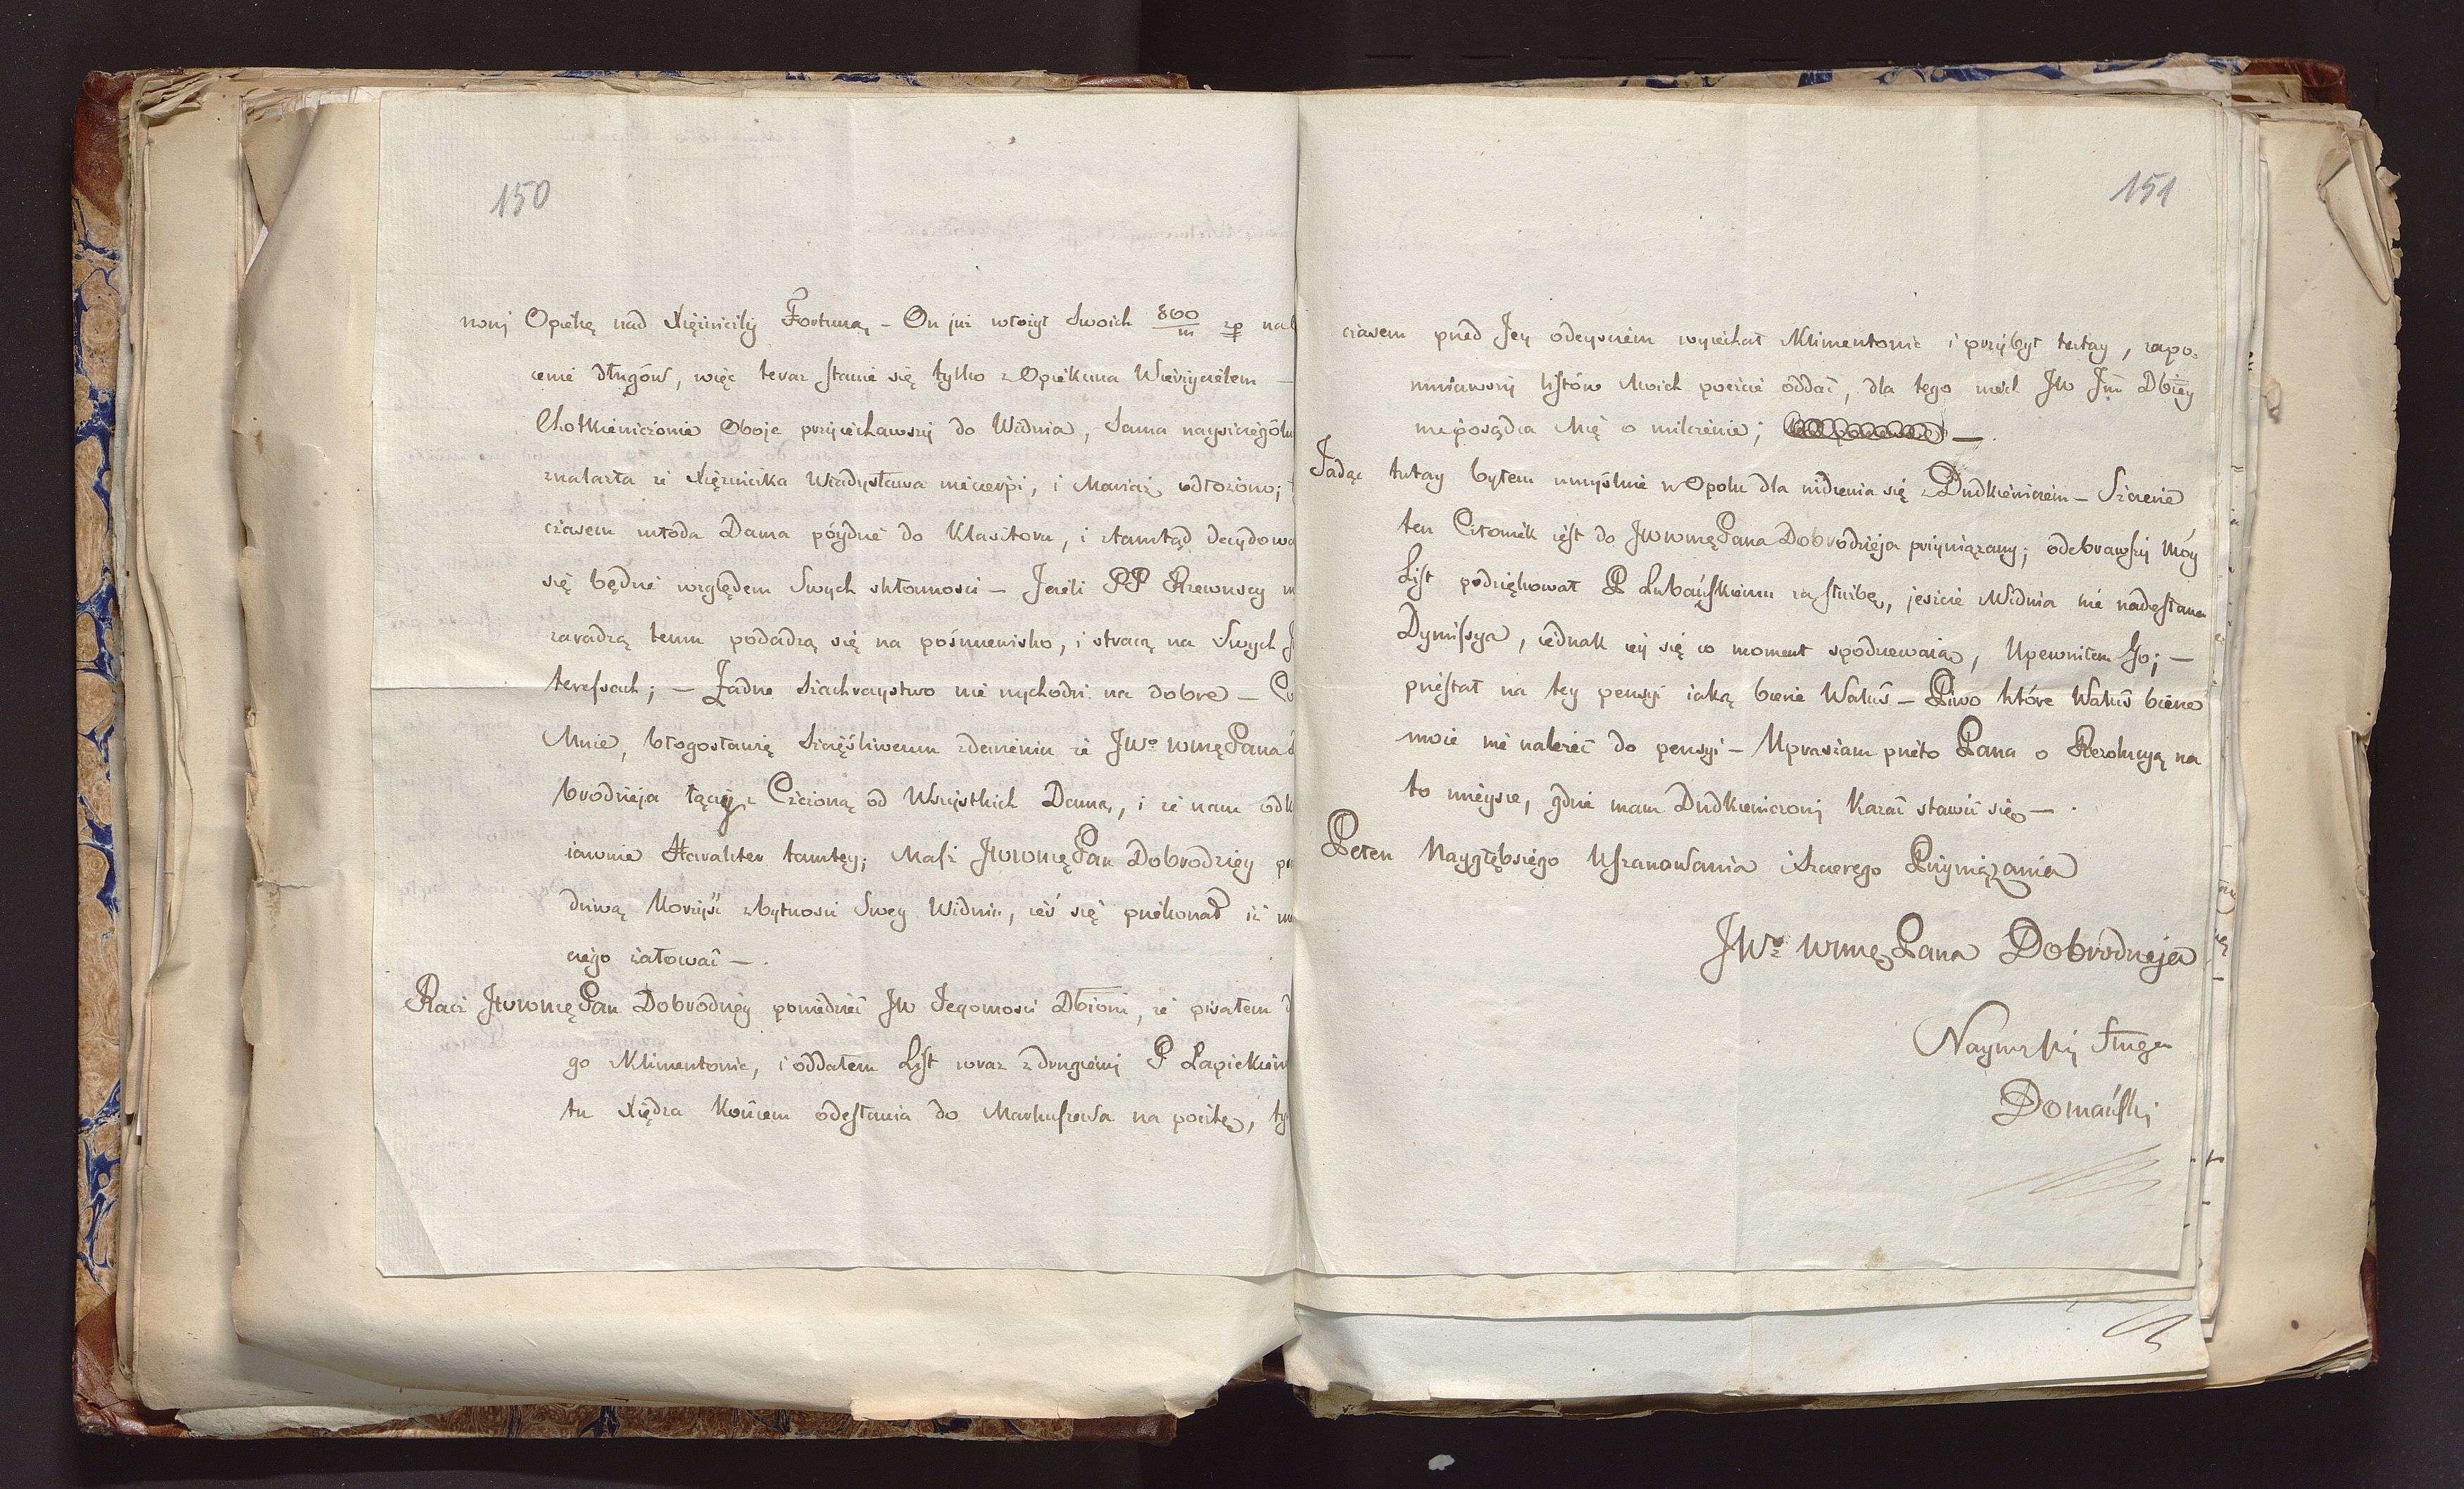 150
wowi Opiekę nad Xiężniczki Fortuną, - On już włożył Swoich 860/m zp na
cenie długów, więc teraz stanie się tylko z Opiekuna Wierzycielem —
Chotkiewiczowie Oboje przyiechawszy do Widnia, Sama
znalazła że Xiężniczka Władysława niecierpi, i Mariaż odłożono;
czasem młoda Dama póydzie do Klasztoru, i ztamtąd
się będzie względem Swych skłonności — Jeżeli PP Rzewuscy
zaradzą temu podadzą się na pośmiewisko, i stracą na Swych
teressach; — Żadne Szachraystwo nie wychodzi na dobre —
Mnie, błogosławię Szczęśliwemu zdarzeniu że JWo WMę Pana
brodzieja łączy z Czczoną od Wszystkich Damą, i że nam
iawnie Harakter tamtey; Masz JWWMę Pan Dobrodziey
dziwą Korzyść z bytności Swey Widniu, żeś się przekonał iż
czego żałować —.
Racz JWWMę Pan Dobrodziey powiedzieć JW Jegomości Dbżowi, że pisałem
go Klimentowic, i oddałem List wraz z drugiemi P
tu Xiędza Końcem odesłania do Markuszewa na pocztę,
151
czasem przed Jey odeysciem wyiechał Klimentowic i przybył tutay, zapo=
mniawszy listów Moich poczcie oddać, dla tego niech JW Jm Dbiey
nieposądza Mię o milczenie; —.
Jadąc tutay byłem umyślnie w Opolu dla widzenia się z Dudkiewiczem — Szczerze
ten Człowiek iest do JWWMę Pana Dobrodzieja przywiązany; odebrawszy Móy
List podziękował P Lubańskiemu za służbę, jeszcze Widnia nie nadesłana
Dymissya, iednak iey się co moment spodziewaią, Upewniłem Go; —
przestał na tey pensyi iaką bierze Waluś — Piwo które Waluś bierze
może nie należeć do pensyi — Upraszam przeto Pana o Rezolucyą na
to mieysce, gdzie mam Dudkiewiczowi kazać stawić się —.
Pełen Naygłębszego Uszanowania i Szczerego Przywiązania
JWo WMę Pana Dobrodzieja
Nayniższy Sługa
Domański